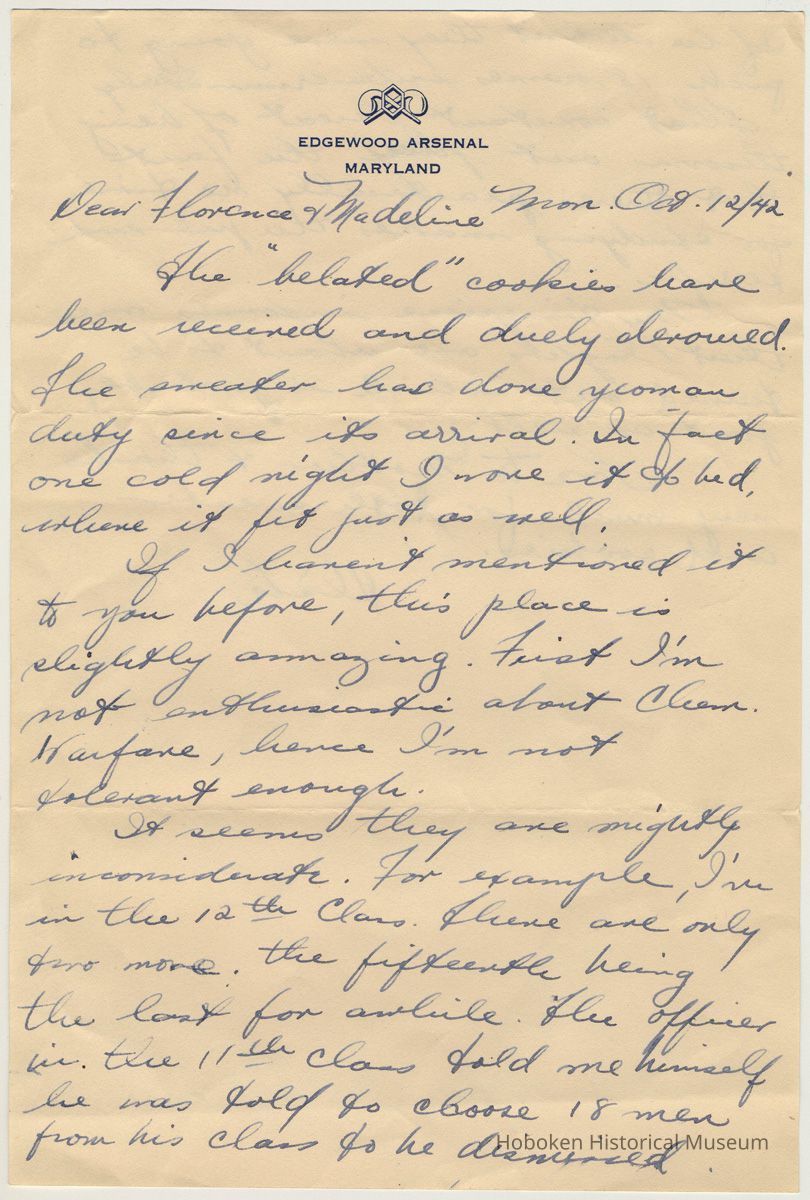 EDGEWOOD ARSENAL
MARYLAND
Dear Florence & Madeline Mon. Oct. 12/42
The "belated" cookies have
been received and duely devowed.
The sweater has done yeoman
duty since its arrival. In fact
one cold night I wore it to bed,
where it fit just as well.
If I haven't mentioned it
to you before, this place is
slightly annoying. First I'm
not enthusiastic about Chem.
Warfare, hence I'm not
tolerant enough.
It seems they are mightly
inconsiderate. For example, I'm
in the 12th Class. There are only
two more. The fifteenth being
the last for awhile. The officer
in the 11th class told me himself
he was told to choose 18 men
from his class to be dismissed.
Hoboken Historical Museum